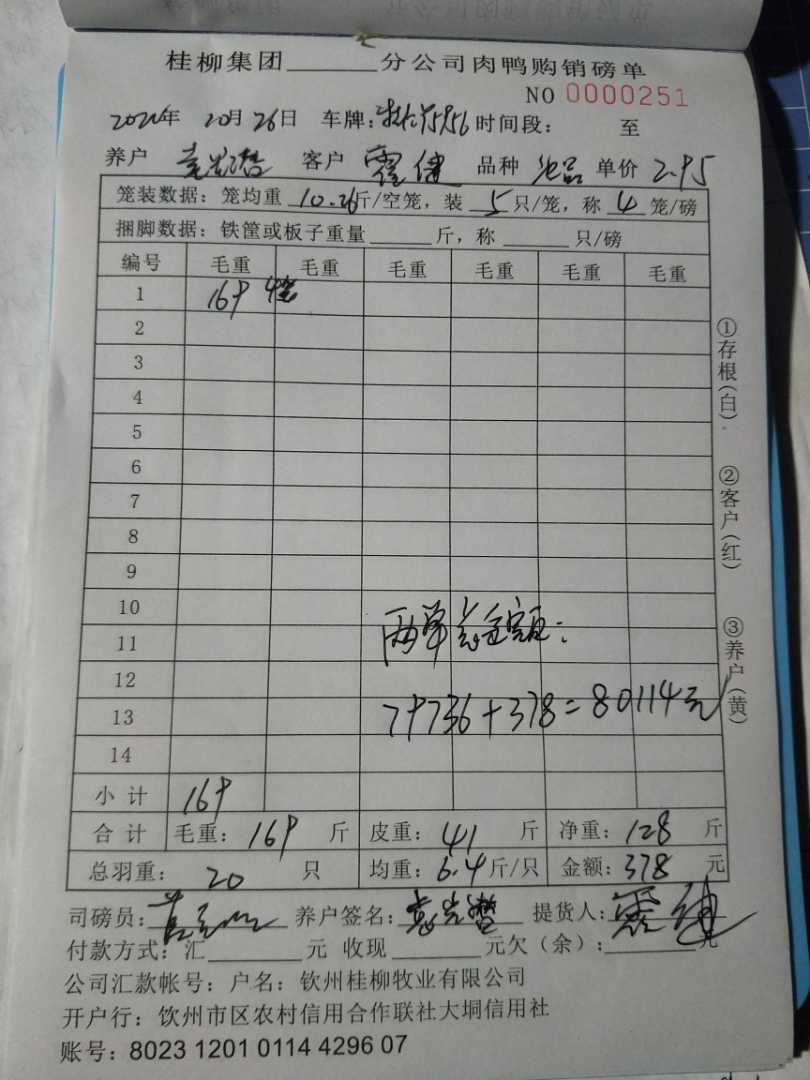 桂柳集团______分公司肉鸭购销磅单
NO 0000251
年 10月26日 车牌: 时间段: 至
养户 客户 霍健 品种 单价 2.95
笼装数据:笼均重 10.26斤/空笼,装 5 只/笼,称 4 笼/磅
捆脚数据:铁筐或板子重量______斤,称______只/磅
编号 毛重 毛重 毛重 毛重 毛重 毛重
1 169 4笼
2
3
4
5
6
7
8
9
10
11
12
13
14
两单总金额:
79736+378=80114元
小计 169
合计 毛重: 169 斤 皮重: 41 斤 净重: 128 斤
总羽重: 20 只 均重: 6.4 斤/只 金额: 378 元
司磅员: 养户签名: 提货人: 霍健
付款方式:汇______元 收现______元欠(余):______元
公司汇款帐号:户名:钦州桂柳牧业有限公司
开户行:钦州市区农村信用合作联社大垌信用社
账号:8023 1201 0114 4296 07
①存根(白)
②客户(红)
③养户(黄)